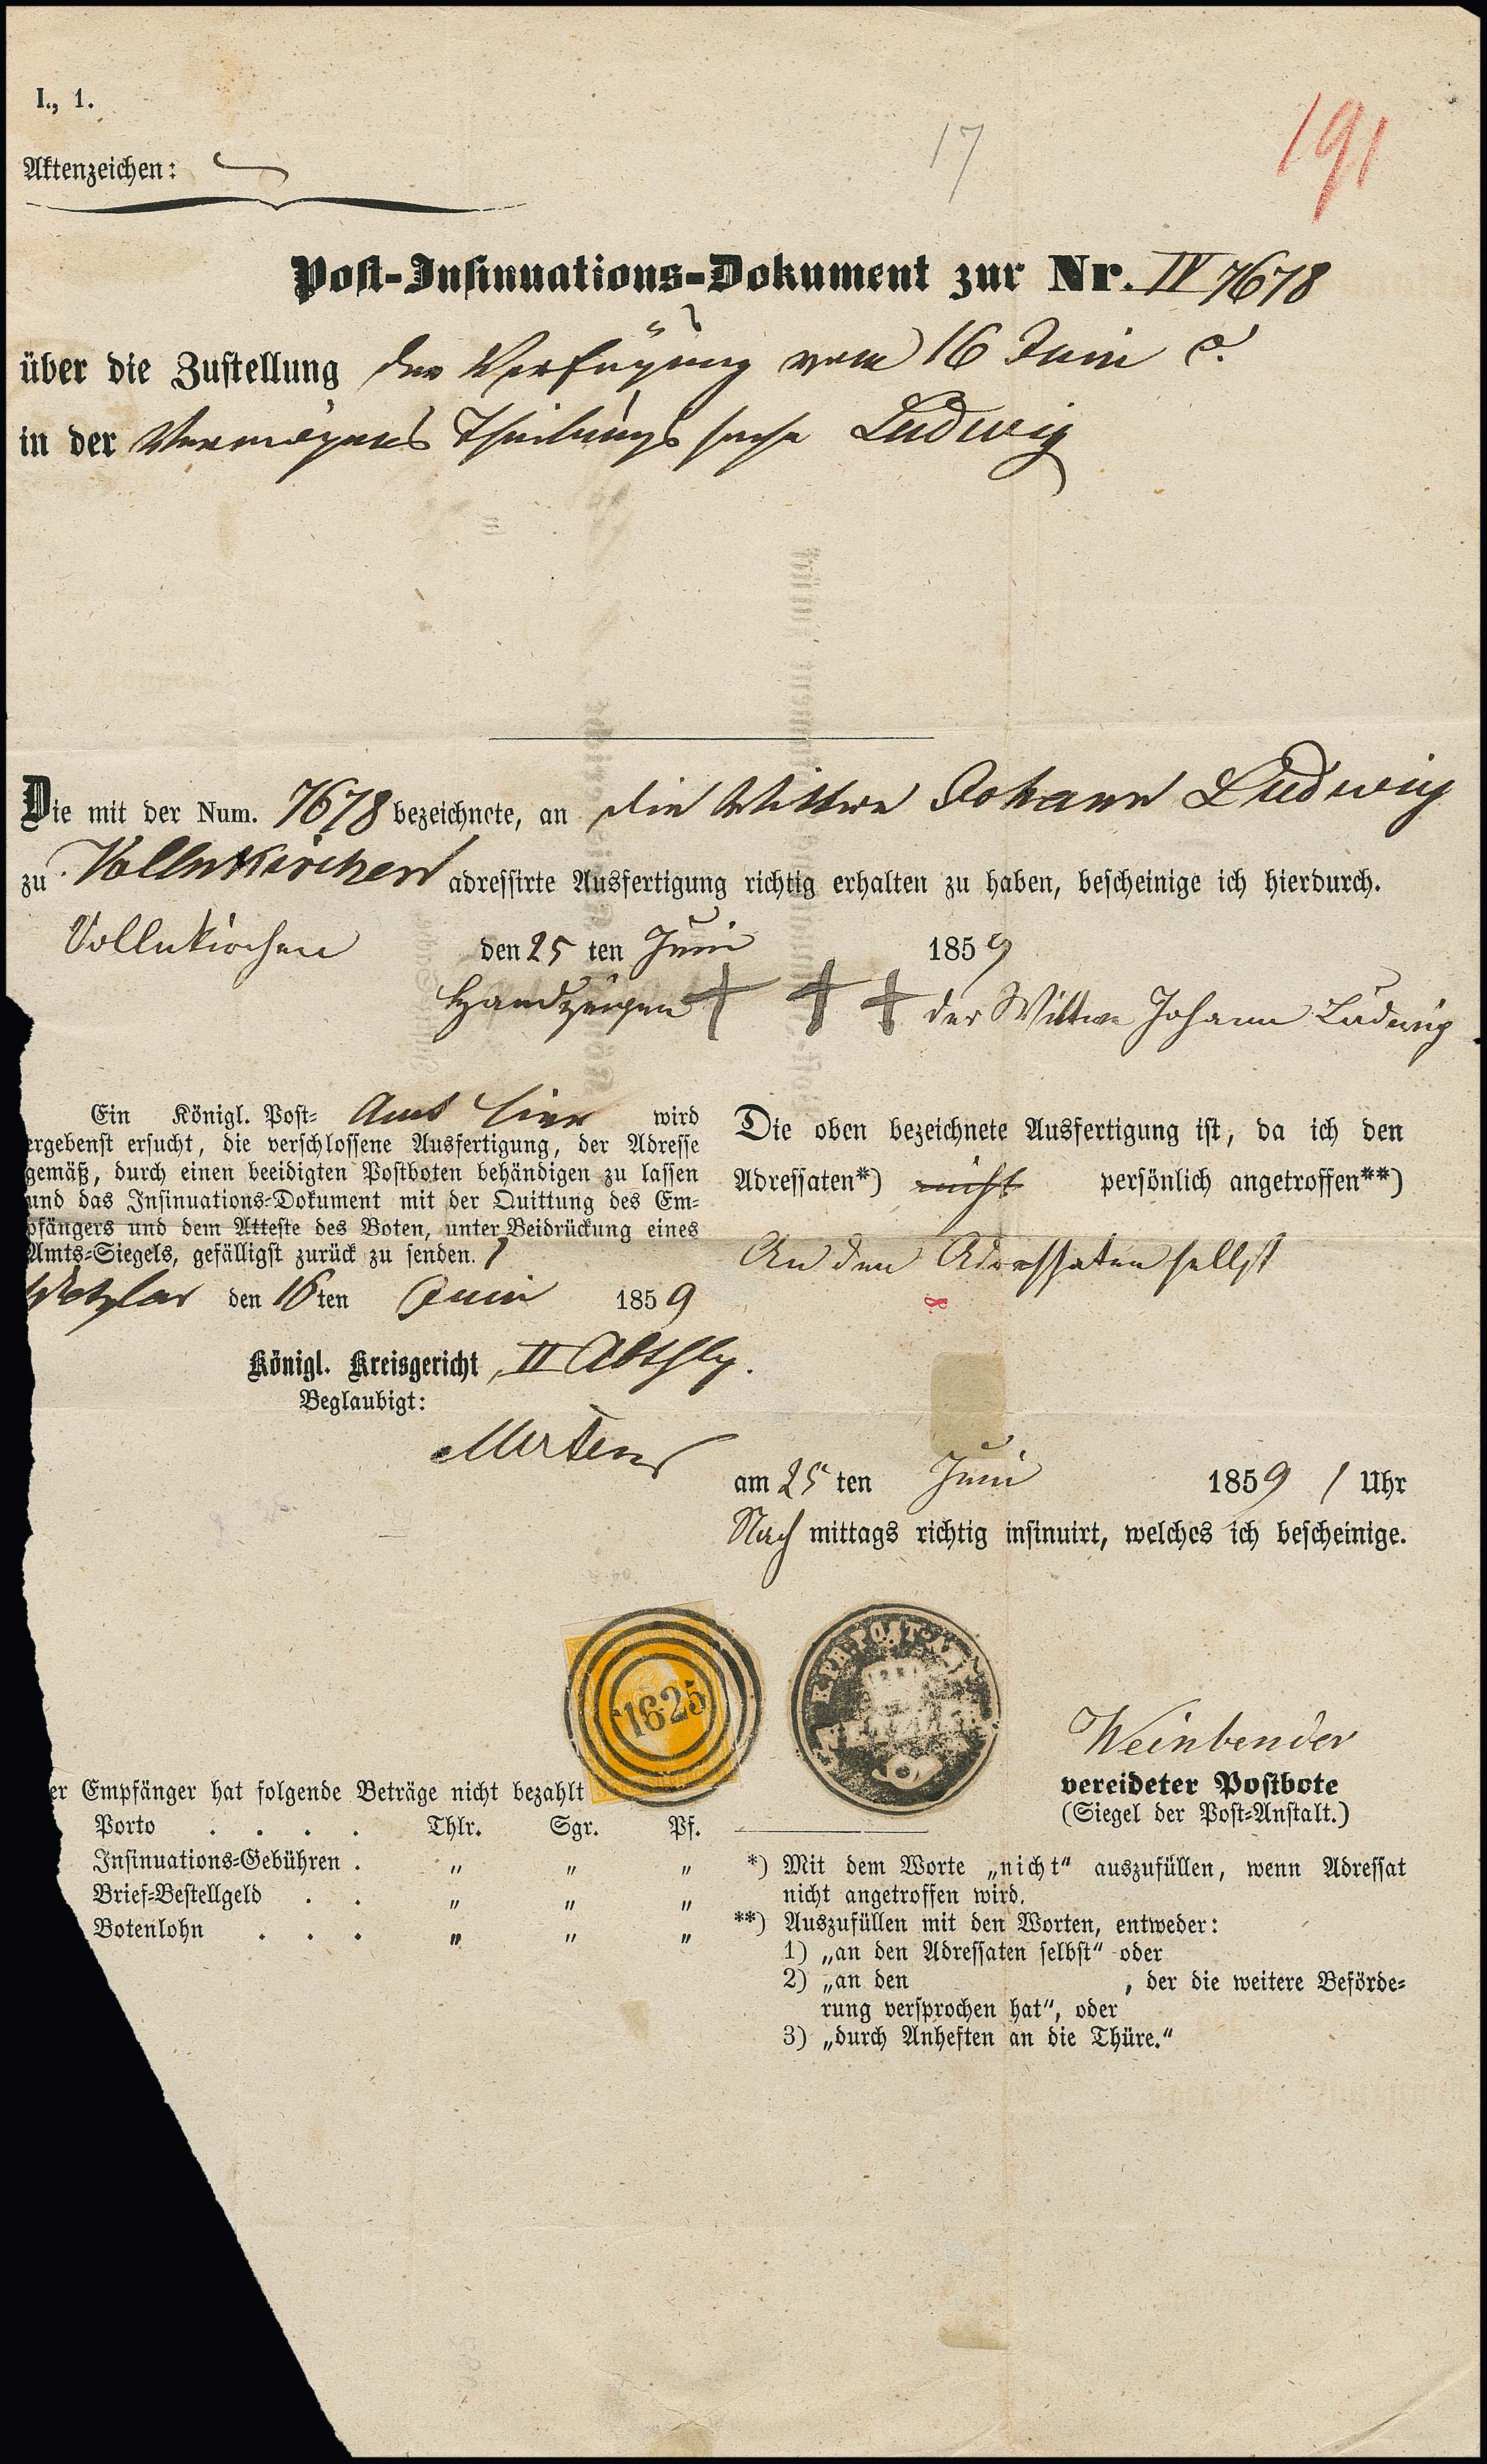 I., 1.
17
191
Aktenzeichen:
Post-Insinuations-Dokument zur Nr. IV 7678
über die Zustellung der Verfügung vom 16 Juni c.
in der Vermögens Theilungs sache Ludwig
Die mit der Num. 7678 bezeichnete, an die Wittwe Johann Ludwig
zu Vollnkirchen adressirte Ausfertigung richtig erhalten zu haben, bescheinige ich hierdurch.
Vollnkirchen den 25 ten Juni 1859
Handzeigen + + + der Wittwe Johann Ludwig
Ein Königl. Post= Amt hier wird
ergebenst ersucht, die verschlossene Ausfertigung, der Adresse
gemäß, durch einen beeidigten Postboten behändigen zu lassen
und das Insinuations=Dokument mit der Quittung des Em=
pfängers und dem Atteste des Boten, unter Beidrückung eines
Amts=Siegels, gefälligst zurück zu senden.
Wetzlar den 16 ten Juni 1859
Königl. Kreisgericht, II Abthlg.
Beglaubigt:
Mertens
Die oben bezeichnete Ausfertigung ist, da ich den
Adressaten*) nicht persönlich angetroffen**)
An den Adressaten selbst
am 25 ten Juni 1859 1 Uhr
Nach mittags richtig insinuirt, welches ich bescheinige.
1625
K. PR. POST-
WETZLAR
Weinbender
vereideter Postbote
(Siegel der Post=Anstalt.)
er Empfänger hat folgende Beträge nicht bezahlt
Porto . . . . Thlr. Sgr. Pf.
Insinuations=Gebühren . " " "
Brief=Bestellgeld . . " " "
Botenlohn . . . " " "
*) Mit dem Worte „nicht“ auszufüllen, wenn Adressat
nicht angetroffen wird.
**) Auszufüllen mit den Worten, entweder:
1) „an den Adressaten selbst“ oder
2) „an den , der die weitere Beförde=
rung versprochen hat“, oder
3) „durch Anheften an die Thüre.“